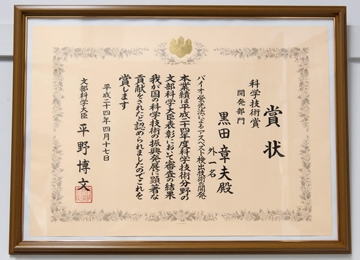 賞状
科学技術賞
開発部門
黒田章夫殿
外一名
バイオ蛍光法によるアスベスト検出技術の開発
本業績は平成二十四年度科学技術分野の
文部科学大臣表彰において審査の結果
我が国の科学技術の振興発展に顕著な
貢献をされたと認められましたのでこれを
賞します
平成二十四年四月十七日
文部科学大臣 平野博文